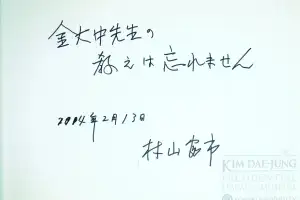 金大中先生の
教えは忘れません
2004年2月13日
村山富市
KIM DAE-JUNG